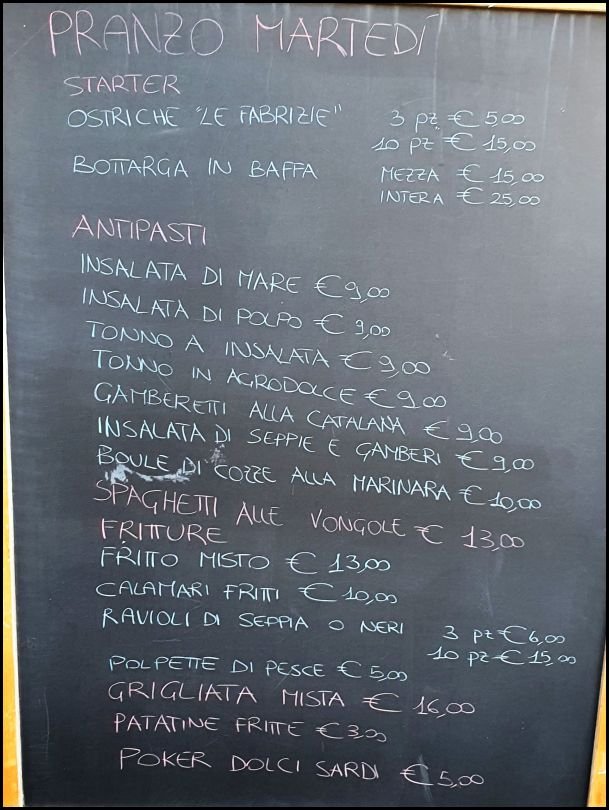 PRANZO MARTEDÍ
STARTER
OSTRICHE "LE FABRIZIE" 3 pz € 5,00
10 pz € 15,00
BOTTARGA IN BAFFA MEZZA € 15,00
INTERA € 25,00
ANTIPASTI
INSALATA DI MARE € 9,00
INSALATA DI POLPO € 9,00
TONNO A INSALATA € 9,00
TONNO IN AGRODOLCE € 9,00
GAMBERETTI ALLA CATALANA € 9,00
INSALATA DI SEPPIE E GAMBERI € 9,00
BOULE DI COZZE ALLA MARINARA € 10,00
SPAGHETTI ALLE VONGOLE € 13,00
FRITTURE
FRITTO MISTO € 13,00
CALAMARI FRITTI € 10,00
RAVIOLI DI SEPPIA O NERI 3 pz € 6,00
10 pz € 15,00
POLPETTE DI PESCE € 5,00
GRIGLIATA MISTA € 16,00
PATATINE FRITTE € 3,00
POKER DOLCI SARDI € 5,00